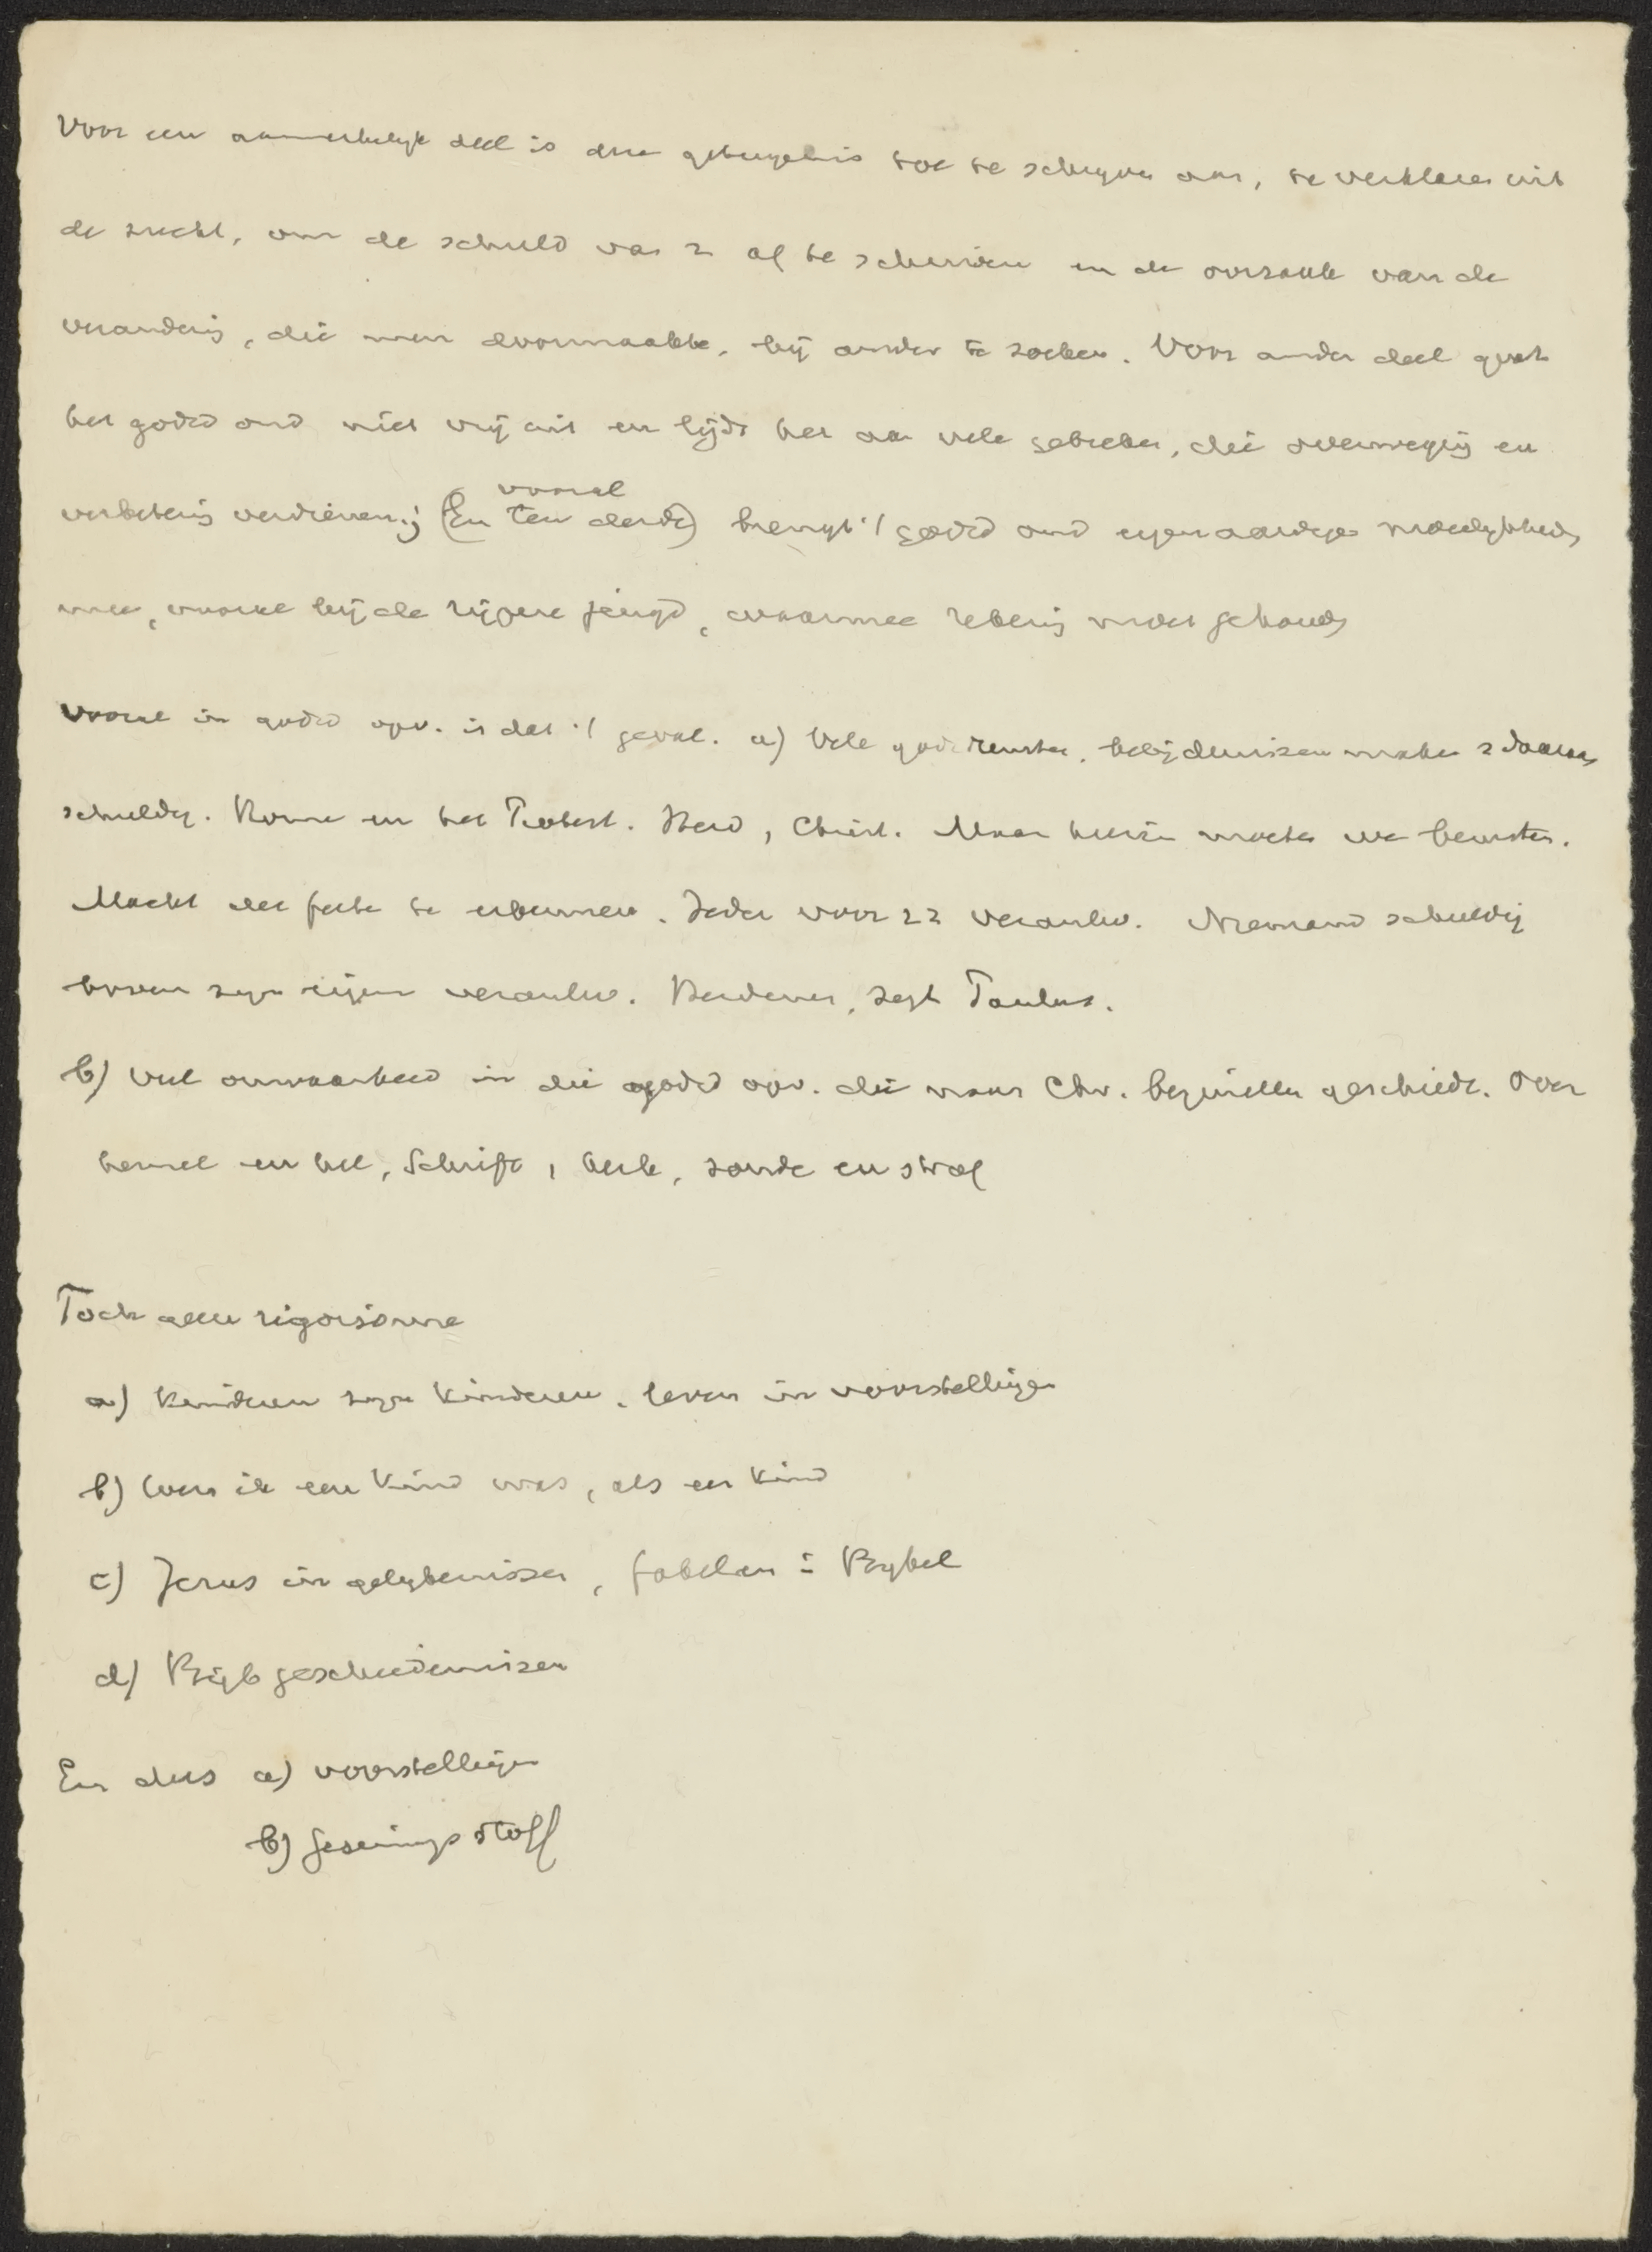 Voor een aanmerkelijk deel is deze getuigenis toe te schrijven aan, te verklaren uit
de zucht, om de schuld van z af te schuiven en de oorzaak van de
verandering, die men doormaakte, bij ander te zoeken. Voor ander deel gaat
het godsd ond niet vrij uit en lijdt het aan vele gebreken, die overweging en
verbetering verdienen; (En ten derde) vooral brengt 't godsd ond eigenaardige moeilijkhed
mee, vooral bij de rijpere jeugd, waarmee rekening moet gehoud
Vooral in godsd opv. is dat 't geval. a) Vele godsdiensten, belijdenissen maken z daaraan
schuldig. Rome en het Protest. Heid, Christ. Maar hierin moeten we berusten.
Macht der feite te erkennen. Ieder voor zz verantw. Niemand schuldig
boven zijn eigen verantw. Heidenen, zegt Paulus.
b) Veel onwaarheid in die godsd opv. die naar Chr. beginselen geschiedt. Over
hemel en hel, Schrift, kerk, zonde en straf
Toch geen rigorisme
a) Kinderen zijn kinderen. leven in voorstellingen
b) Toen ik een kind was, als een kind
c) Jezus in gelijkenissen, fabelen i Bijbel
d) Bijb geschiedenissen
En dus a) voorstellingen
b) gezuings stoff